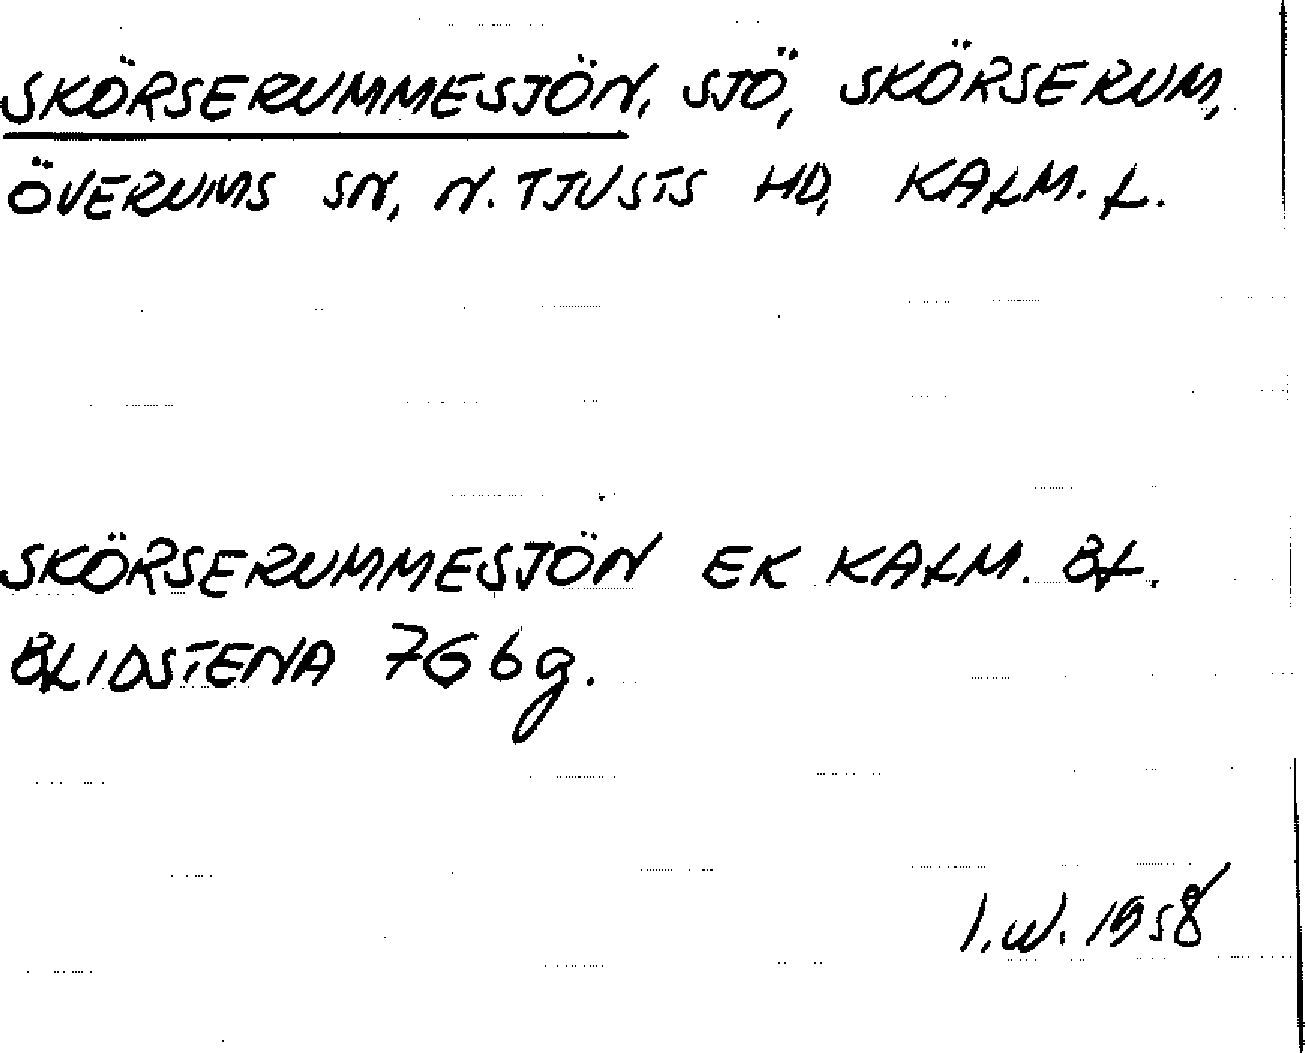 SKÖRSERUMMESJÖN, SJÖ, SKÖRSERUM,
ÖVERUMS SN, N. TJUSTS HD, KALM. L.
SKÖRSERUMMESJÖN EK KALM. BL.
BLIDSTENA 7G 6g.
I.W. 1958